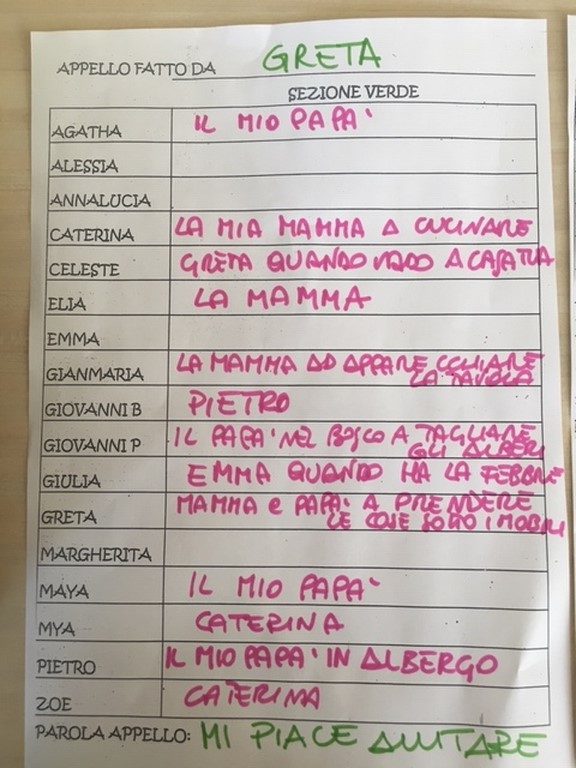 APPELLO FATTO DA GRETA
SEZIONE VERDE
AGATHA IL MIO PAPA'
ALESSIA
ANNALUCIA
CATERINA LA MIA MAMMA A CUCINARE
CELESTE GRETA QUANDO VADO A CASA TUA
ELIA LA MAMMA
EMMA
GIANMARIA LA MAMMA AD APPARECCHIARE
LA TAVOLA
GIOVANNI B PIETRO
GIOVANNI P IL PAPA' NEL BOSCO A TAGLIARE
GLI ALBERI
GIULIA EMMA QUANDO HA LA FEBBRE
GRETA MAMMA e PAPA' A PRENDERE
LE COSE SOTTO I MOBILI
MARGHERITA
MAYA IL MIO PAPA'
MYA CATERINA
PIETRO IL MIO PAPA' IN ALBERGO
ZOE CATERINA
PAROLA APPELLO: MI PIACE AIUTARE